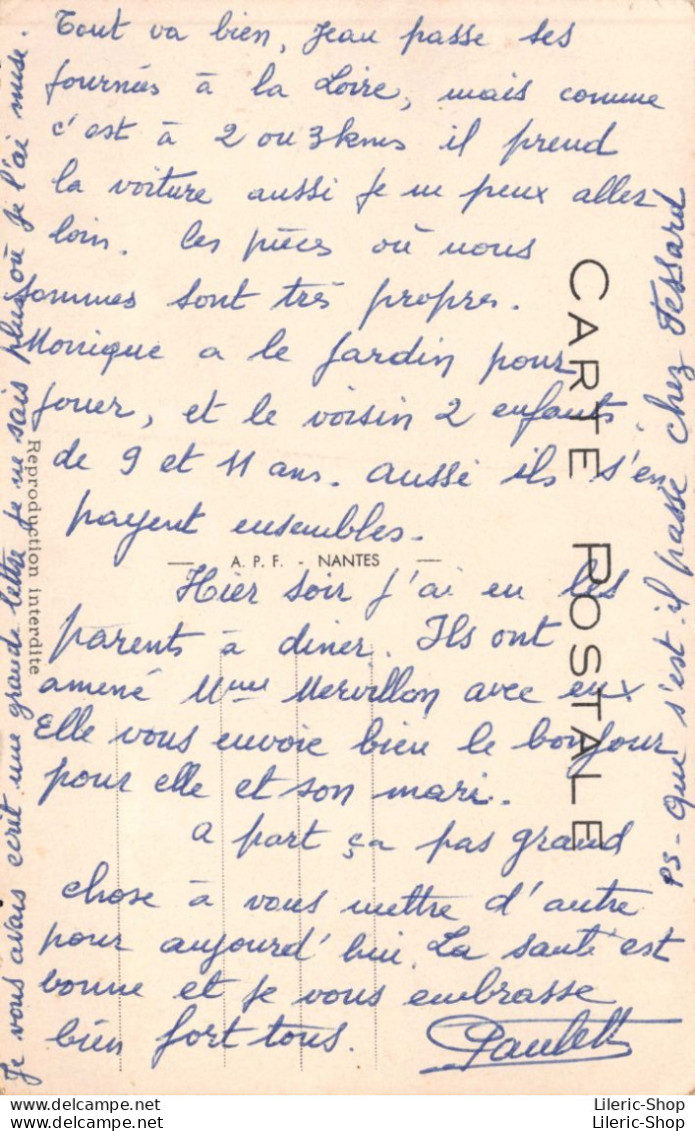 Tout va bien, Jean passe ses
journées à la Loire, mais comme
c'est à 2 ou 3 kms il prend
la voiture aussi je ne peux aller
loin. Les pièces où nous
sommes sont très propres.
Monique a le jardin pour
jouer, et le voisin 2 enfants
de 9 et 11 ans. aussi ils s'en
payent ensembles.
Hier soir j'ai eu les
parents à diner. Ils ont
amené Mme Mervillon avec eux
Elle vous envoie bien le bonjour
pour elle et son mari.
a part ça pas grand
chose à vous mettre d'autre
pour aujourd'hui. La santé est
bonne et je vous embrasse
bien fort tous. Paulette
Je vous avais écrit une grande lettre je ne sais plus où je l'ai mise.
PS - Que s'est-il passé chez Tessard
CARTE POSTALE
Reproduction interdite
A. P. F. - NANTES
Lileric-Shop
Lileric-Shop
Lileric-Shop
Lileric-Shop